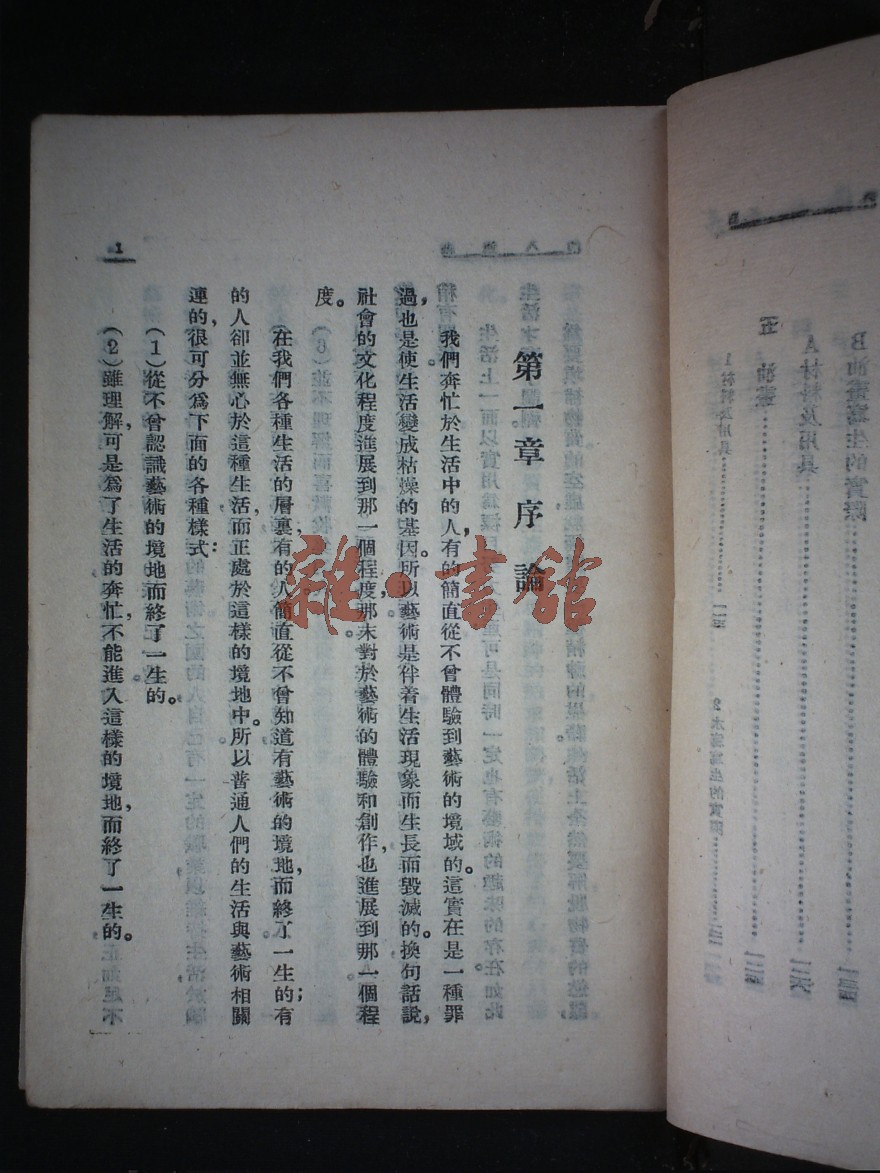 B油畫寫生的實際
A材料及用具
五 油畫
1材料及用具
2
第一章 序論
我們奔忙於生活中的人,有的簡直從不曾體驗到藝術的境域的。這實在是一種罪
過,也是使生活變成枯燥的基因。所以藝術是伴着生活現象而生長而毀滅的。換句話說,
社會的文化程度進展到那一個程度,那末對於藝術的體驗和創作,也進展到那一個程
度。
在我們各種生活的層裏,有的人簡直從不曾知道有藝術的境地,而終了一生的;有
的人卻並無心於這種生活,而正處於這樣的境地中。所以普通人們的生活與藝術相關
連的,很可分爲下面的各種樣式:
(1)從不曾認識藝術的境地而終了一生的。
(2)雖理解,可是爲了生活的奔忙,不能進入這樣的境地,而終了一生的。
1
雜·書館